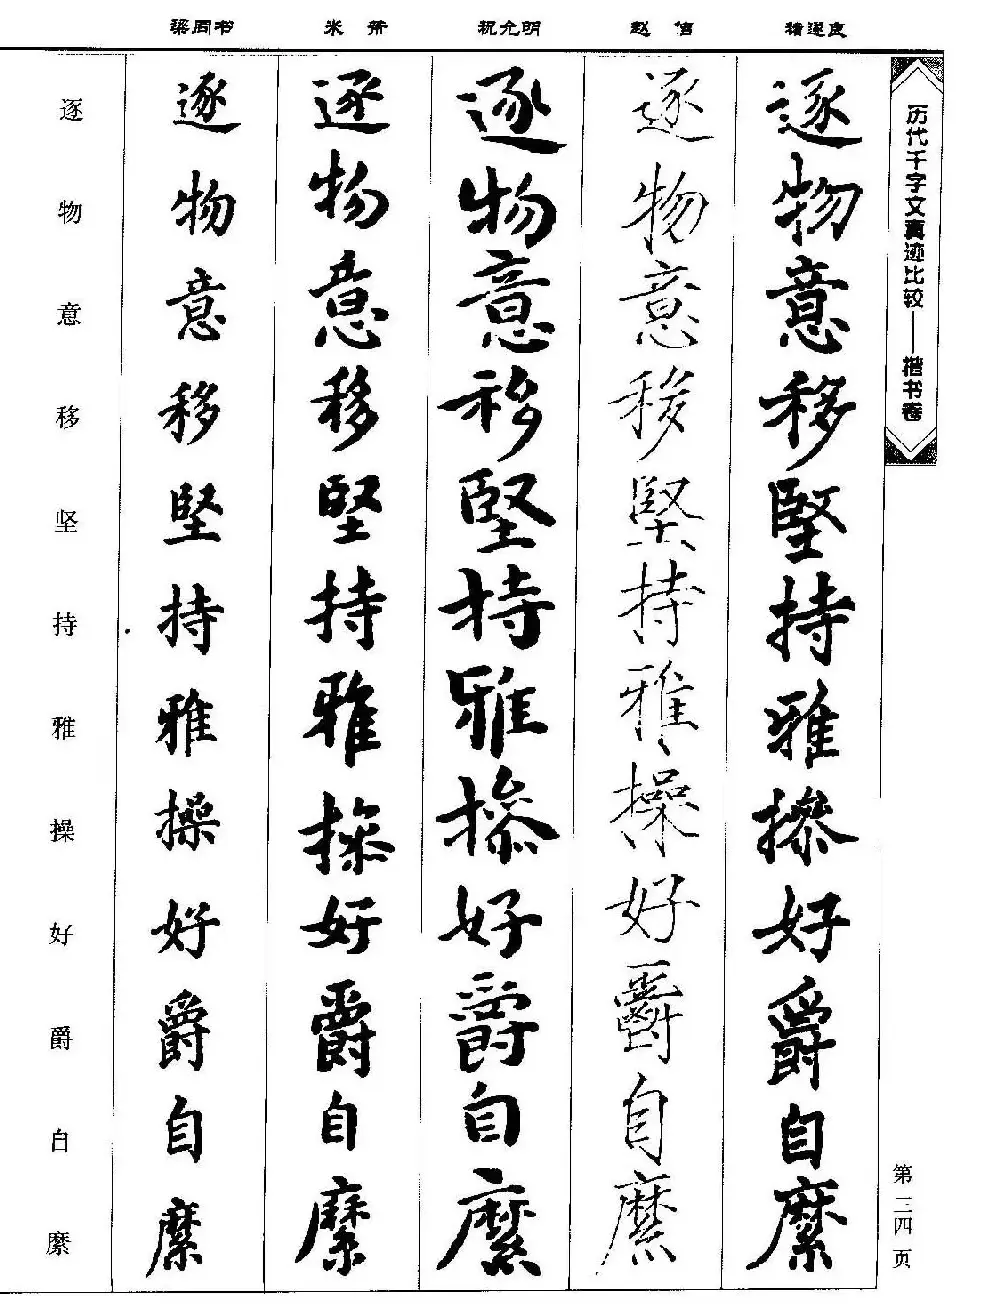 历代千字文真迹比较——楷书卷
褚遂良
逐物意移堅持雅操好爵自縻
赵佶
逐物意移堅持雅操好爵自縻
祝允明
逐物意移堅持雅操好爵自縻
米芾
逐物意移堅持雅操好爵自縻
梁同书
逐物意移堅持雅操好爵自縻
逐物意移坚持雅操好爵自縻
第三四页